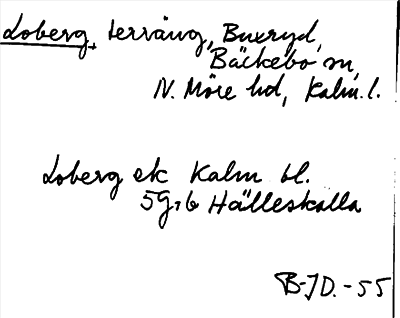 Loberg, terräng, Buxryd,
Bäckebo sn,
N. Möre hd, Kalm. l.
Loberg ek Kalm bl.
5G:6 Hälleskalla
B-JD.-55